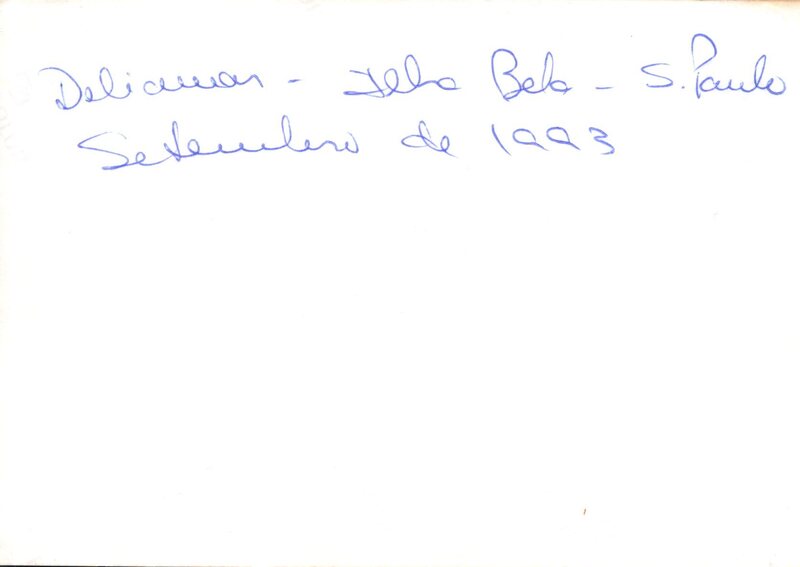 Deliamar - Ilha Bela - S. Paulo
Setembro de 1993